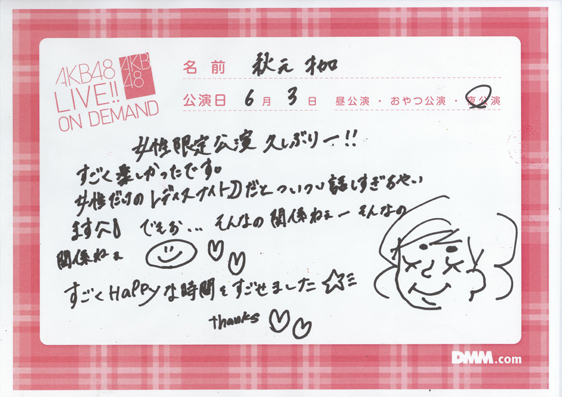 AKB48
LIVE!!
ON DEMAND
AKB
48
名前 秋元才加
公演日 6月3日 昼公演・おやつ公演・夜公演
女性限定公演 久しぶりー!!
すごく楽しかったです。
女性だけのレディスナイトDだとついつい話しすぎちゃい
ます でもお... そんなの関係ねぇー そんなの
関係ねぇ
すごくHappyな時間をすごせました
thanks
DMM.com